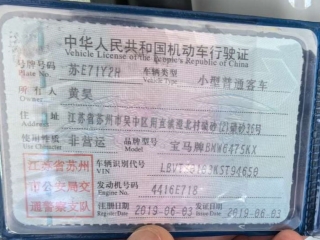 中华人民共和国机动车行驶证
Vehicle License of the People's Republic of China
号牌号码 苏E71Y2H 车辆类型 小型普通客车
Plate No. Vehicle Type
所有人 黄昊
Owner
住址 江苏省苏州市吴中区甪直镇淞北村
Address
使用性质 非营运 品牌型号 宝马牌BMW6475KX
Use Character Model
江苏省苏州 车辆识别代号
VIN
市公安局交 发动机号码 4416E718
Engine No.
通警察支队 注册日期 2019-06-03 发证日期 2019-06-03
Register Date Issue Date